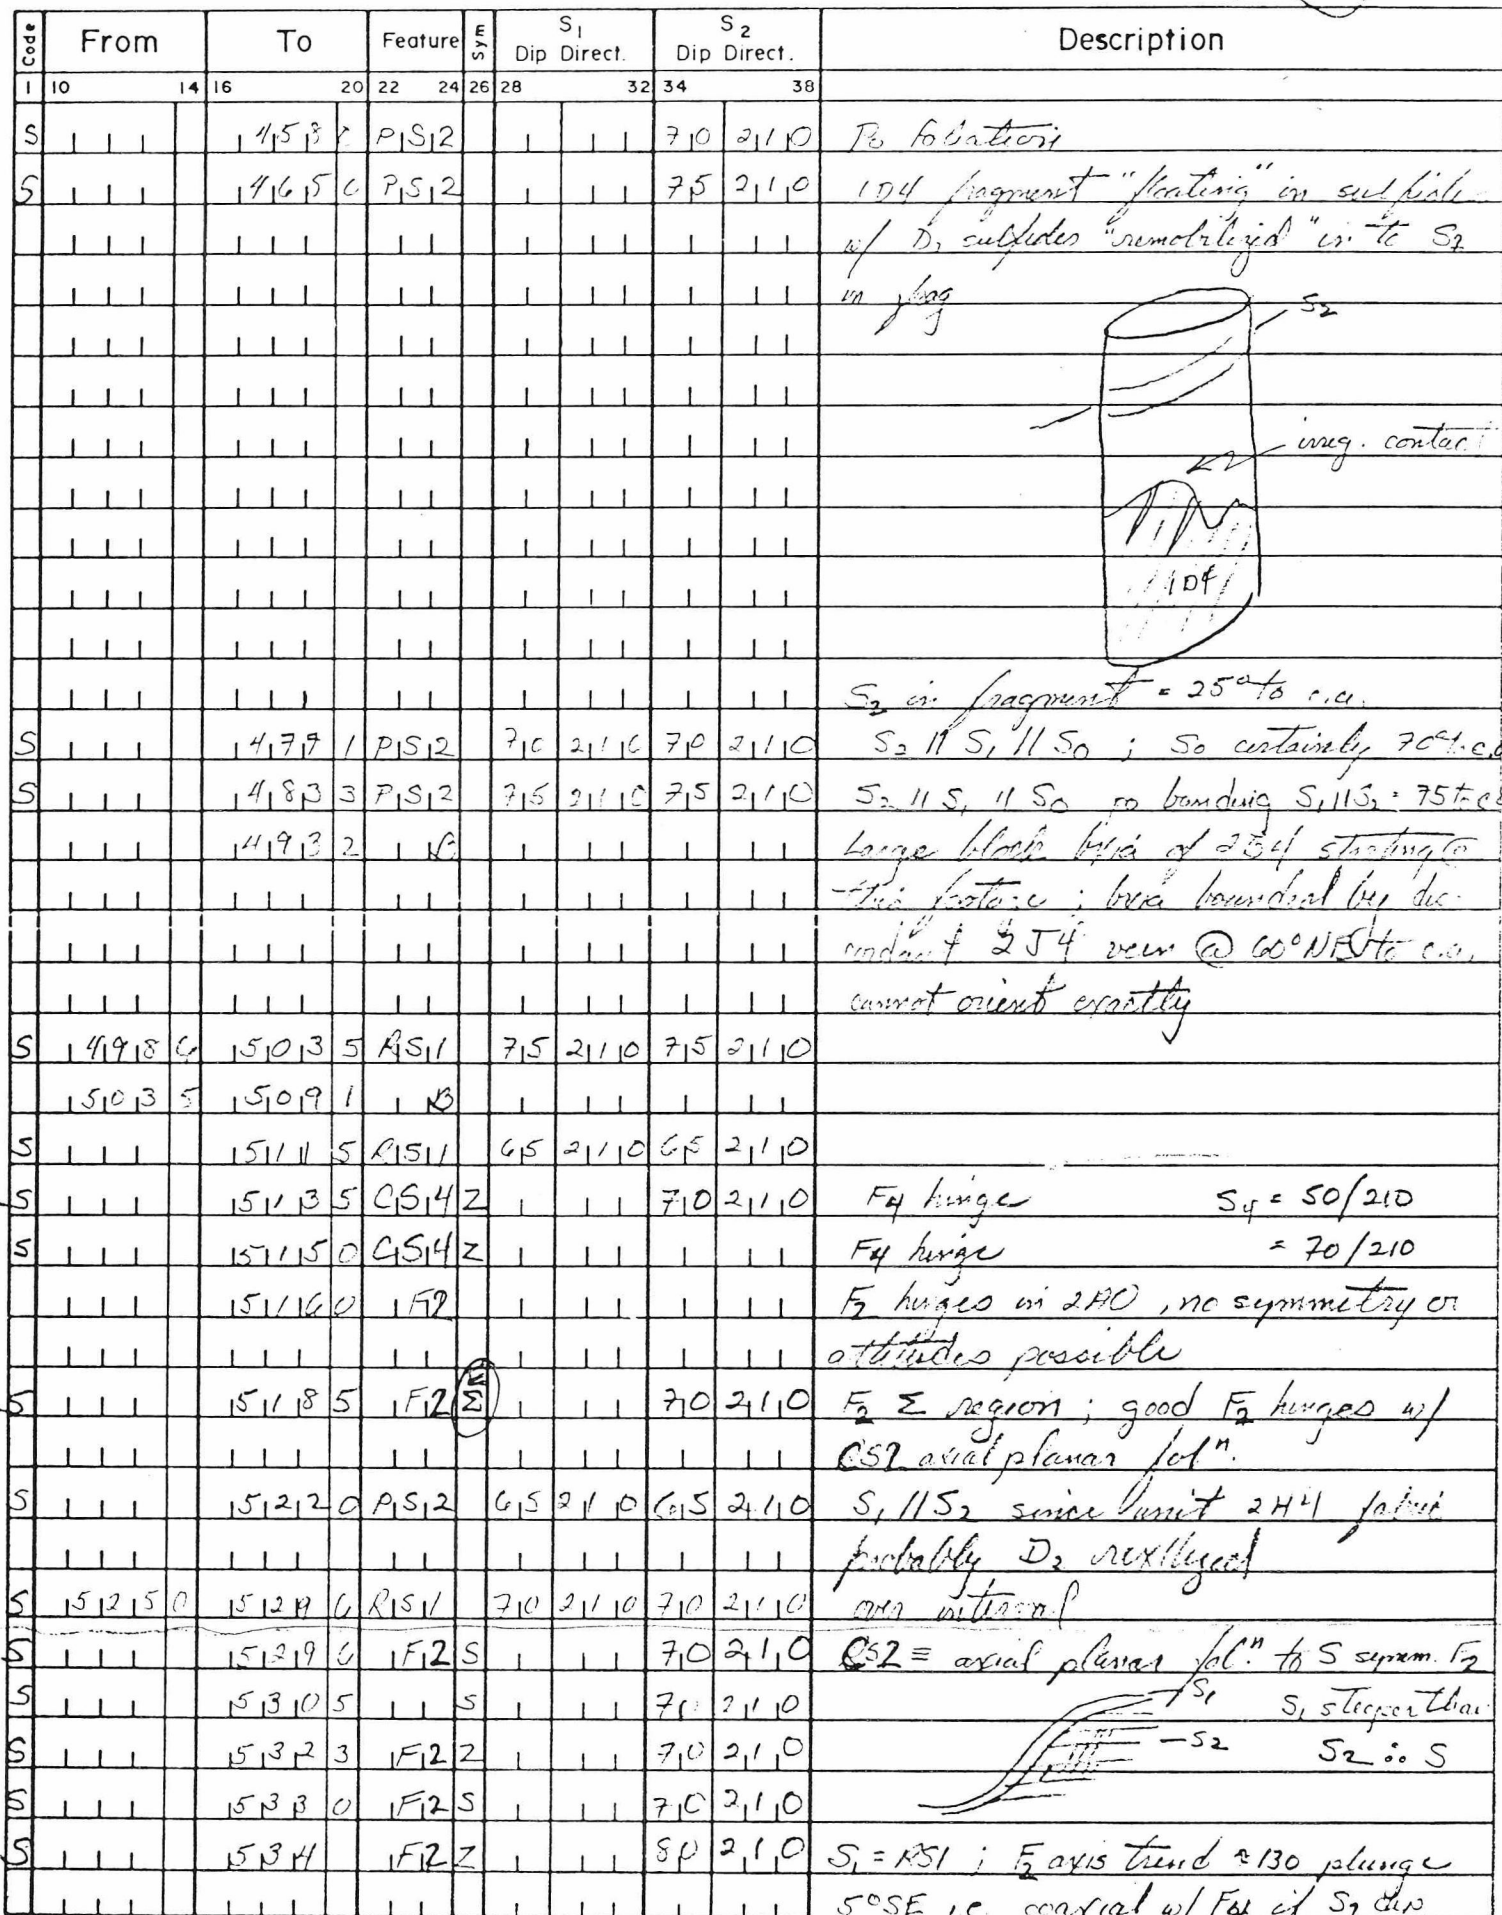 Code From To Feature Sym S1 Dip Direct. S2 Dip Direct. Description
1 10 14 16 20 22 24 26 28 32 34 38
S 458 PS2 70 210 Po foliation
S 4650 PS2 75 210 1D4 fragment "floating" in sulfide
w/ D2 sulfides "remobilized" into S2
in frag
S2
irreg. contact
1D4
S2 in fragment = 25° to c.a.
S 4791 PS2 70 210 70 210 S2 // S1 // S0 ; S0 certainly 70° to c.a
S 4833 PS2 75 210 75 210 S2 // S1 // S0 po banding S1 // S2 = 75 to ca
4932 B Large block bxia of 2B4 starting @
this footage ; bxia bounded by dis-
cordant 2J4 vein @ 60° NE to c.a.
cannot orient exactly
S 4986 5035 RS1 75 210 75 210
5035 5091 B
S 5115 RS1 65 210 65 210
S 5135 CS4 Z 70 210 F4 hinge S4 = 50/210
S 5150 CS4 Z F4 hinge = 70/210
5160 F2 F2 hinges in 2A0, no symmetry or
attitudes possible
S 5185 F2 Σ 70 210 F2 Σ region ; good F2 hinges w/
CS2 axial planar folⁿ.
S 5220 PS2 65 210 65 210 S1 // S2 since unit 2H4 fabric
probably D2 rexllyzed
S 5250 5296 RS1 70 210 70 210 over interval
S 5296 F2 S 70 210 CS2 ≡ axial planar folⁿ. to S symm. F2
S 5305 S 70 210 S1 S1 steeper than
S 5323 F2 Z 70 210 -S2 S2 ∴ S
S 5330 F2 S 70 210
S 534 F2 Z 80 210 S1 = RS1 ; F2 axis trend ≈ 130 plunge
5° SE i.e. coaxial w/ F4 if S2 dip